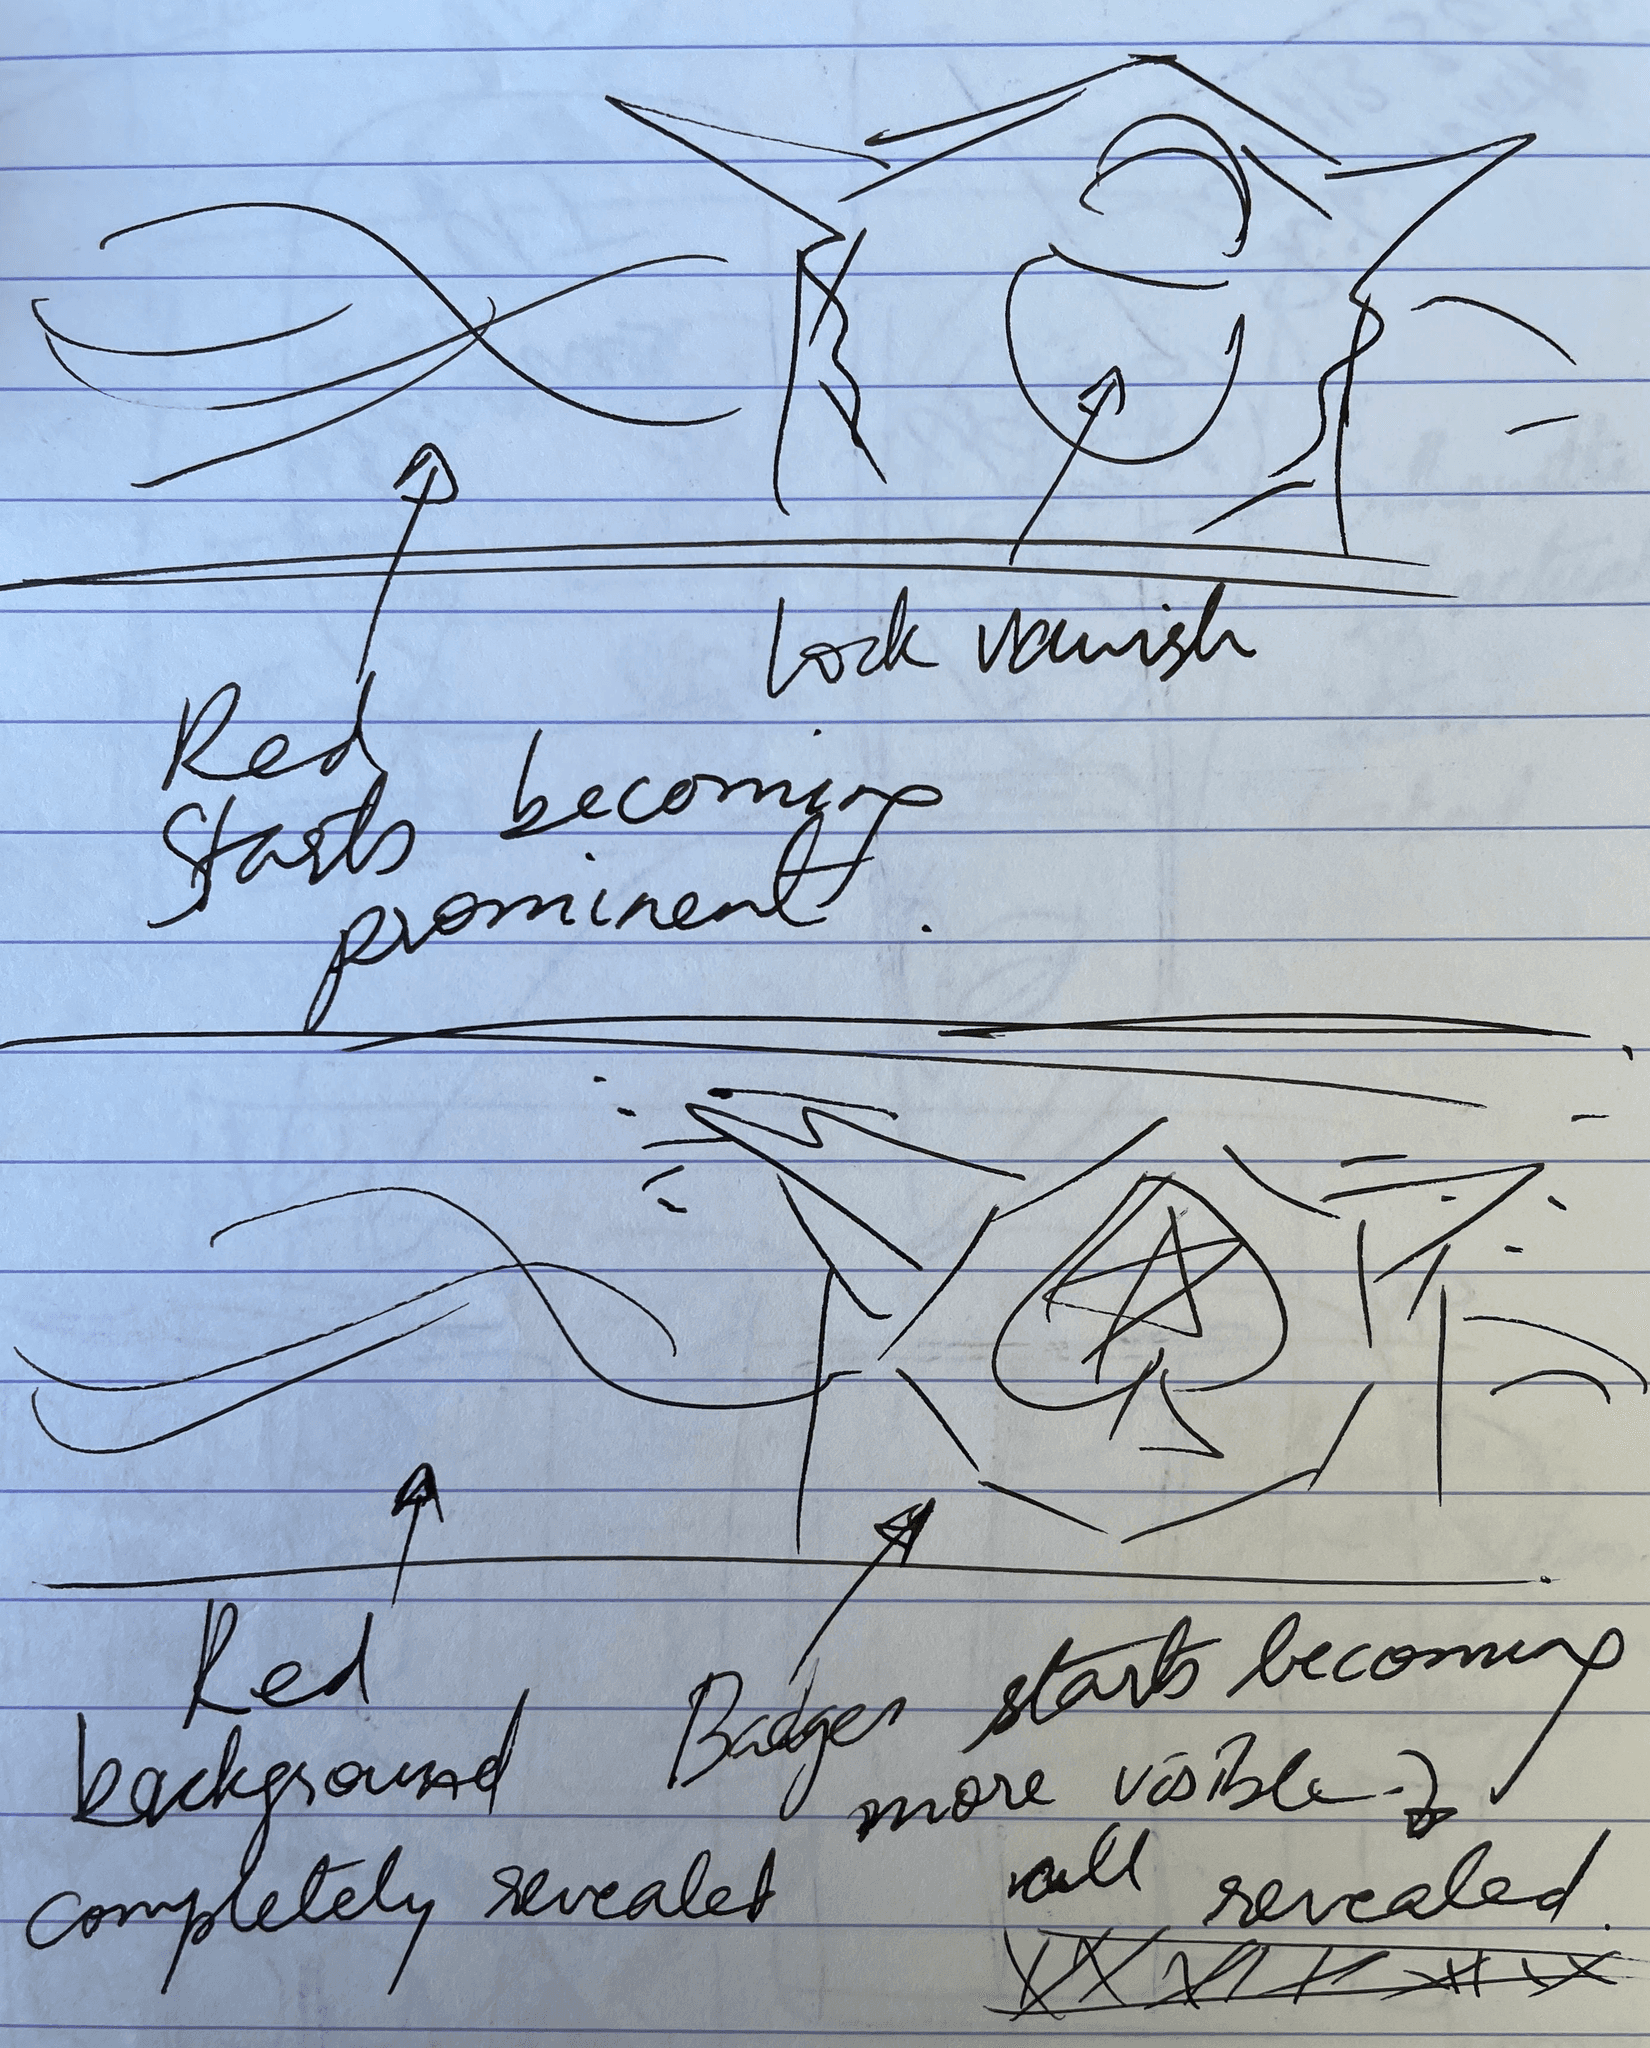 Lock vanish
Red
starts becoming
prominent.
Red
background
completely revealed
Badges starts becoming
more visible &
all revealed.